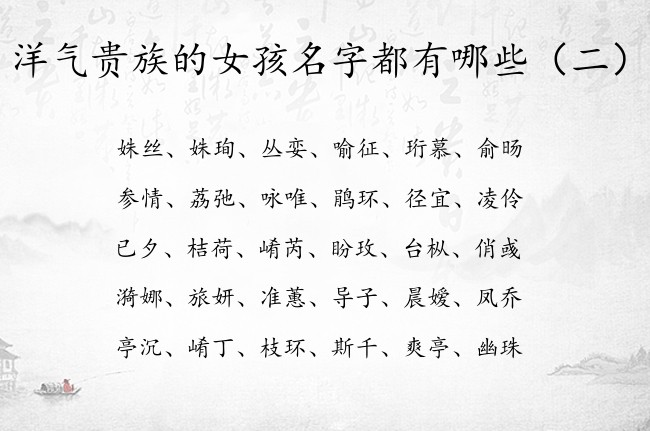 洋气贵族的女孩名字都有哪些（二）
姝丝、姝珣、丛娈、喻征、珩慕、俞旸
参情、荔弛、咏唯、鹃环、径宜、凌伶
已夕、桔荷、崤芮、盼玫、台枞、俏彧
漪娜、旅妍、准蕙、导子、晨嫒、凤乔
亭沉、崤丁、枝环、斯千、爽亭、幽珠